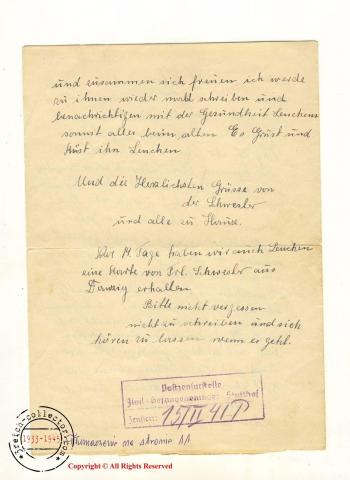 und zusammen sich freuen ich werde
zu ihnen wieder mahl schreiben und
benachrichtigen mit der Gesundheit Lenchens
sonnst alles beim alten Es Grüst und
Küst ihn Lenchen
Und die Herzlichsten Grüsse von
der Schwester
und alle zu Hause.
M Tage haben wir auch Lenchen
eine Karte von Frl. Schwester aus
Danzig erhalten
Bitte nicht vergessen
nicht zu schreiben und sich
hören zu lassen wenn es geht.
Postzensurstelle
Zivil-Gefangenenlager Stutthof
Zensiert: 15/II 41
na stronie
reich-collector.com
1933-1945
Copyright © All Rights Reserved